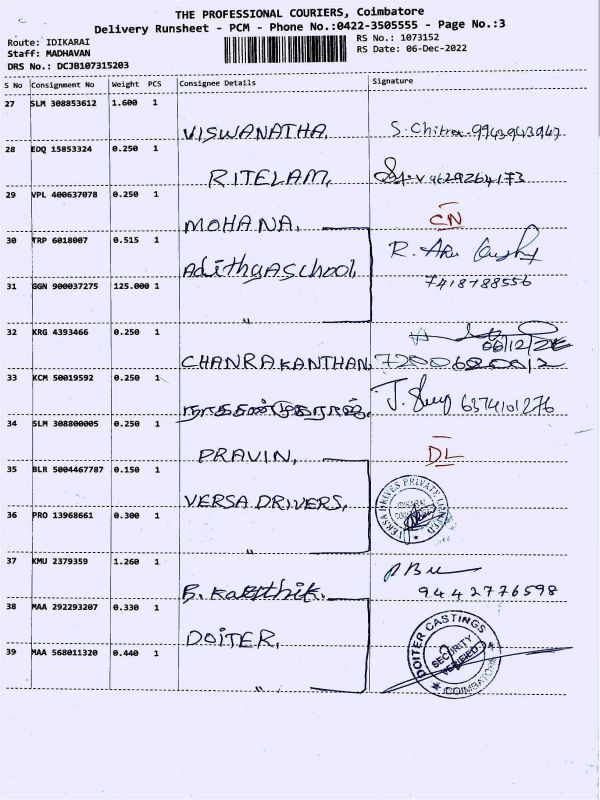 THE PROFESSIONAL COURIERS, Coimbatore
Delivery Runsheet - PCM - Phone No.:0422-3505555 - Page No.:3
Route: IDIKARAI
RS No.: 1073152
Staff: MADHAVAN
RS Date: 06-Dec-2022
DRS No.: DCJB107315203
S No Consignment No Weight PCS Consignee Details Signature
27 SLM 308853612 1.600 1
VISWANATHA, S. Chitra 9943943943
28 EDQ 15853324 0.250 1
RITELAM,
29 VPL 400637078 0.250 1
MOHANA, CN
30 TRP 6018007 0.515 1
Adithya School, R.
31 GGN 900037275 125.000 1 7418788556
"
32 KRG 4393466 0.250 1
06/12/22
CHANRAKANTHAN,
33 KCM 50019592 0.250 1
J. 6374101276
34 SLM 308800005 0.250 1
PRAVIN, DL
35 BLR 5004467787 0.150 1
VERSA DRIVERS, VERSA DRIVES PRIVATE LIMITED
IDIKARAI
36 PRO 13968661 0.300 1
"
37 KMU 2379359 1.260 1
B. Karthik. 9442776598
38 MAA 292293207 0.330 1
DOITER, DOITER CASTINGS
SECURITY
VERIFIED
COIMBATORE
39 MAA 568011320 0.440 1
"